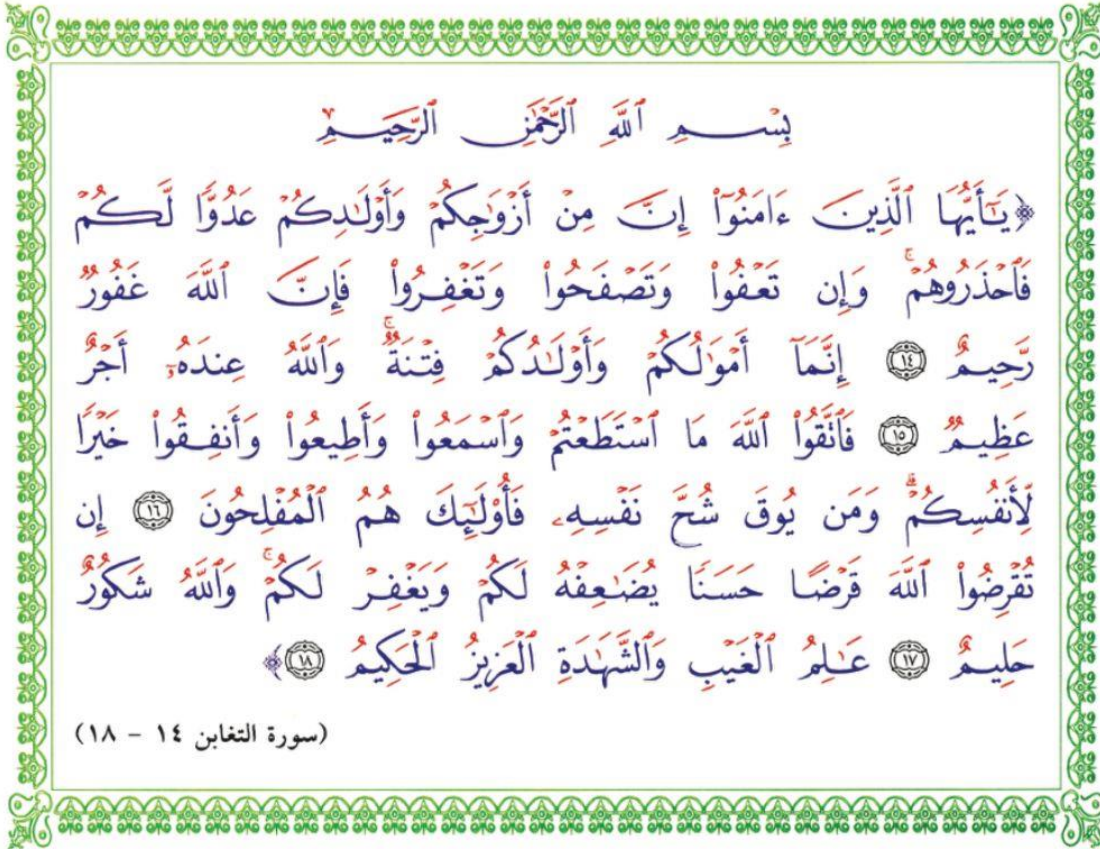 بِسْمِ ٱللَّهِ ٱلرَّحْمَٰنِ ٱلرَّحِيمِ
﴿يَٰٓأَيُّهَا ٱلَّذِينَ ءَامَنُوٓا۟ إِنَّ مِنْ أَزْوَٰجِكُمْ وَأَوْلَٰدِكُمْ عَدُوًّا لَّكُمْ
فَٱحْذَرُوهُمْ ۚ وَإِن تَعْفُوا۟ وَتَصْفَحُوا۟ وَتَغْفِرُوا۟ فَإِنَّ ٱللَّهَ غَفُورٌ
رَّحِيمٌ ١٤ إِنَّمَآ أَمْوَٰلُكُمْ وَأَوْلَٰدُكُمْ فِتْنَةٌ ۚ وَٱللَّهُ عِندَهُۥٓ أَجْرٌ
عَظِيمٌ ١٥ فَٱتَّقُوا۟ ٱللَّهَ مَا ٱسْتَطَعْتُمْ وَٱسْمَعُوا۟ وَأَطِيعُوا۟ وَأَنفِقُوا۟ خَيْرًا
لِّأَنفُسِكُمْ ۗ وَمَن يُوقَ شُحَّ نَفْسِهِۦ فَأُو۟لَٰٓئِكَ هُمُ ٱلْمُفْلِحُونَ ١٦ إِن
تُقْرِضُوا۟ ٱللَّهَ قَرْضًا حَسَنًا يُضَٰعِفْهُ لَكُمْ وَيَغْفِرْ لَكُمْ ۚ وَٱللَّهُ شَكُورٌ
حَلِيمٌ ١٧ عَٰلِمُ ٱلْغَيْبِ وَٱلشَّهَٰدَةِ ٱلْعَزِيزُ ٱلْحَكِيمُ ١٨﴾
(سورة التغابن ١٤ - ١٨)